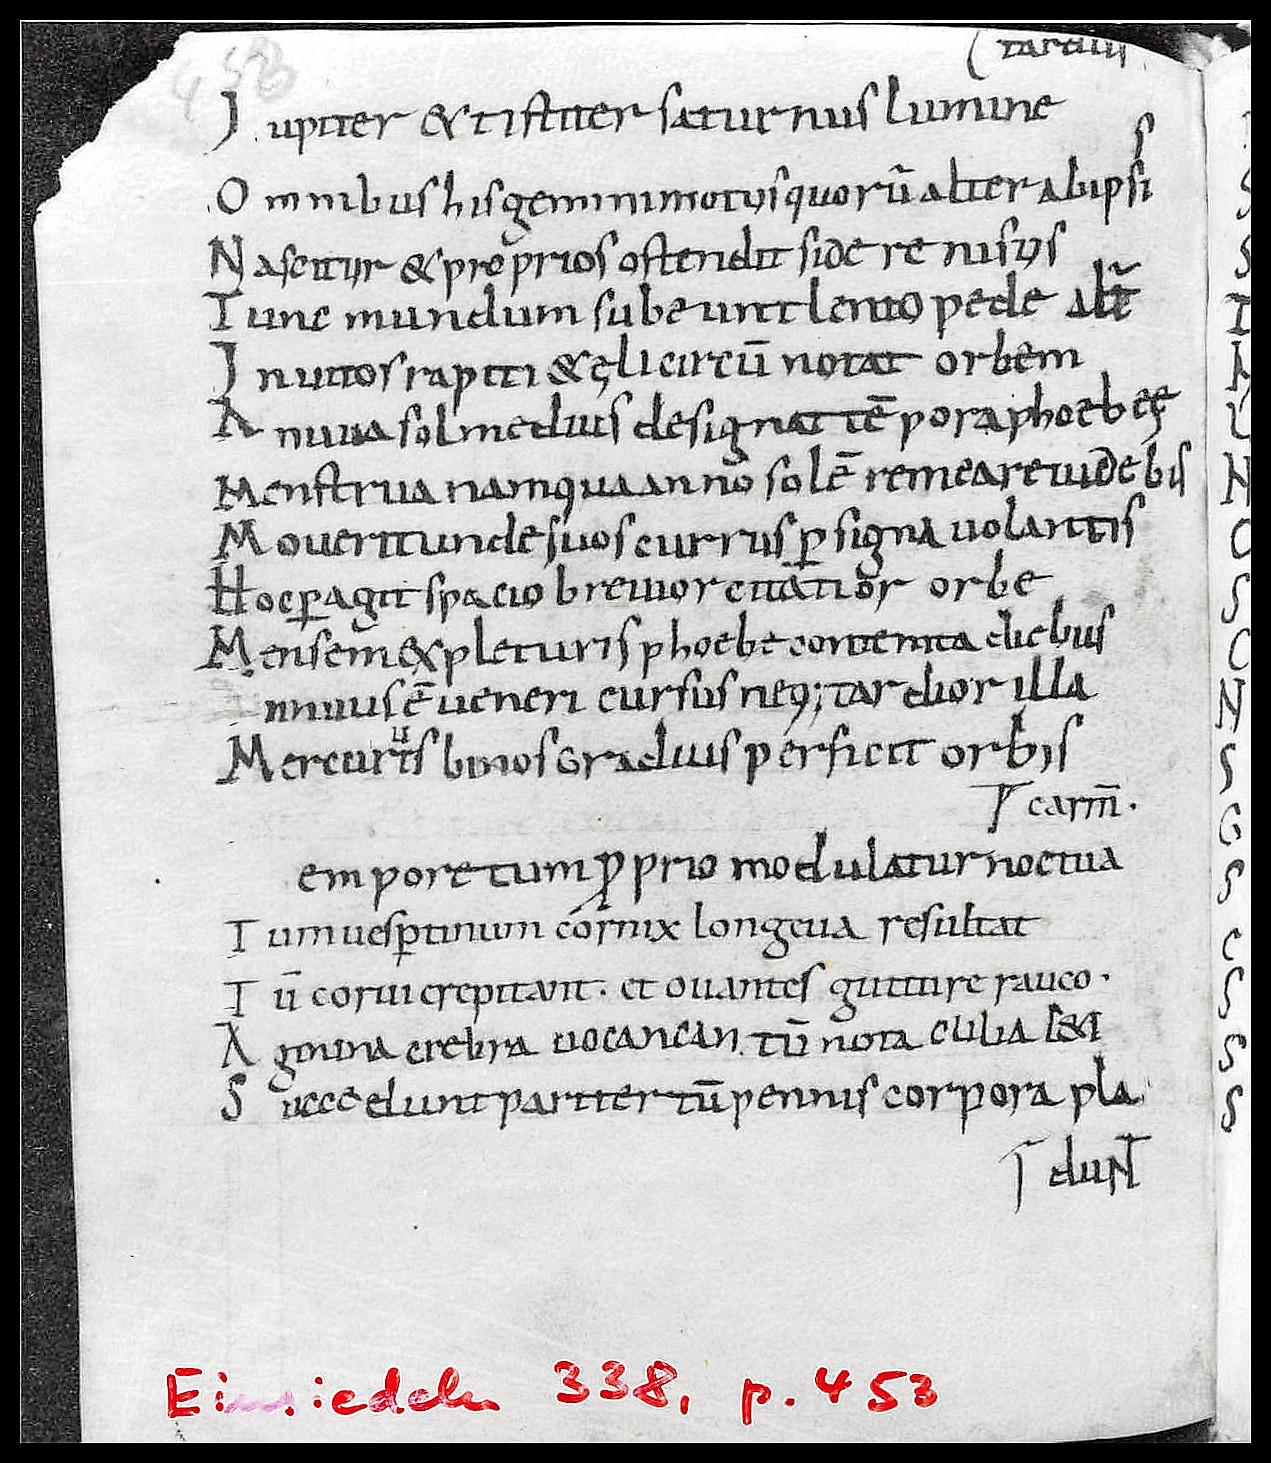 453
(tardus
Jupiter & tristiter saturnus lumine
s
Omnibus his geminimotus quorū alter abipsi
Nascitur & pre proprios ostendit sidere nisus
Tunc mundum subeunt lento pede alt̄
Jnuitos rapiti & cęli circū notat orbem
Annua sol medius designat tēpora phoebeę
Menstrua namqua anno solē remeare uidebis
Mouerit unde suos currus p̱ signa uolantis
Hoc p̱agit spacio breuior citatior orbe
Mensem expleturis phoebe contenta diebus
minus ē ueneri cursus neq; tardior illa
u
Mercuris binos gradius perficit orbis
carm̄.
empore tum proprio modulatur noctua
Tum uesp̱tinum cornix longeua resultat
Tū corui crepitant. et ouantes gutture rauco.
Agmina crebra uocancan. tū nota cubilia l&i
Succedunt pariter tū pennis corpora pla
duNT
Einsiedeln 338, p. 453